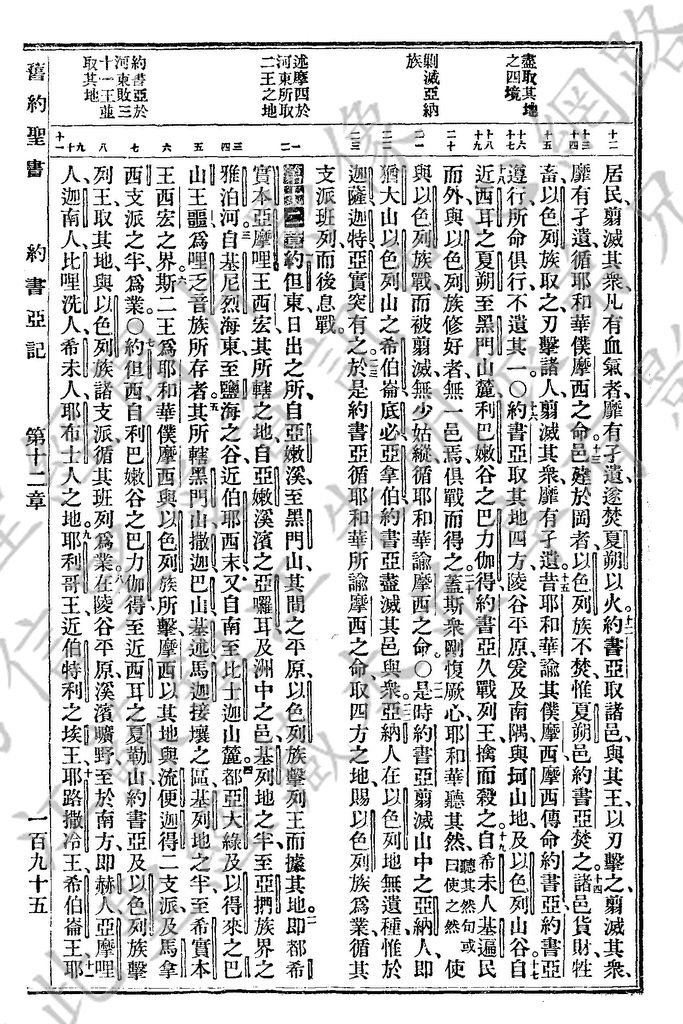 盡取其地
之四境
剿滅亞納
族
述摩西於
河東所取
二王之地
約書亞於
河東敗三
十一王並
取其地
居民、翦滅其衆、凡有血氣者、靡有孑遺、遂焚夏朔以火、約書亞取諸邑、與其王、以刃擊之、翦滅其衆、
靡有孑遺、循耶和華僕摩西之命、邑建於岡者、以色列族不焚、惟夏朔邑、約書亞焚之、諸邑貨財牲
畜、以色列族取之、刃擊諸人、翦滅其衆、靡有孑遺、昔耶和華諭其僕摩西、摩西傳命約書亞、約書亞
遵行所命、俱行、不遺其一、〇約書亞取其地四方、陵谷平原、爰及南隅、與坷山地、及以色列山谷、自
近西耳之夏朔、至黑門山麓、利巴嫩谷之巴力伽得、約書亞久戰列王、擒而殺之、自希未人基遍民
而外、與以色列族修好者、無一邑焉、俱戰而得之、蓋斯衆剛愎厥心、耶和華聽其然、聽其然句或曰使之然使
與以色列族戰、而被翦滅、無少姑縱、循耶和華諭摩西之命、〇是時約書亞翦滅山中之亞納人、即
猶大山、以色列山之希伯崙、底必、亞拿伯、約書亞盡滅其邑與衆、亞納人在以色列地無遺種、惟於
迦薩迦特亞實突有之、於是約書亞循耶和華所諭摩西之命、取四方之地、賜以色列族爲業、循其
支派班列、而後息戰、
第十二章 約但東日出之所、自亞嫩溪至黑門山、其間之平原、以色列族擊列王而據其地、即都希
實本亞摩哩王西宏、其所轄之地、自亞嫩溪濱之亞囉耳、及洲中之邑、基列地之半、至亞捫族界之
雅泊河、自基尼烈海東、至鹽海之谷、近伯耶西末、又自南至比士迦山麓、都亞大綠及以得來之巴
山王噩、爲哩乏音族所存者、其所轄黑門山、撒迦、巴山、基述、馬迦接壤之區、基列地之半、至希實本
王西宏之界、斯二王爲耶和華僕摩西、與以色列族所擊、摩西以其地與流便迦得二支派、及馬拿
西支派之半爲業、〇約但西、自利巴嫩谷之巴力伽得、至近西耳之夏勒山、約書亞及以色列族擊
列王、取其地、與以色列族諸支派、循其班列爲業、在陵谷平原溪濱曠野、至於南方、即赫人、亞摩哩
人、迦南人、比哩洗人、希未人、耶布士人之地、耶利哥王、近伯特利之埃王、耶路撒冷王、希伯崙王、耶
舊約聖書 約書亞記 第十二章 一百九十五